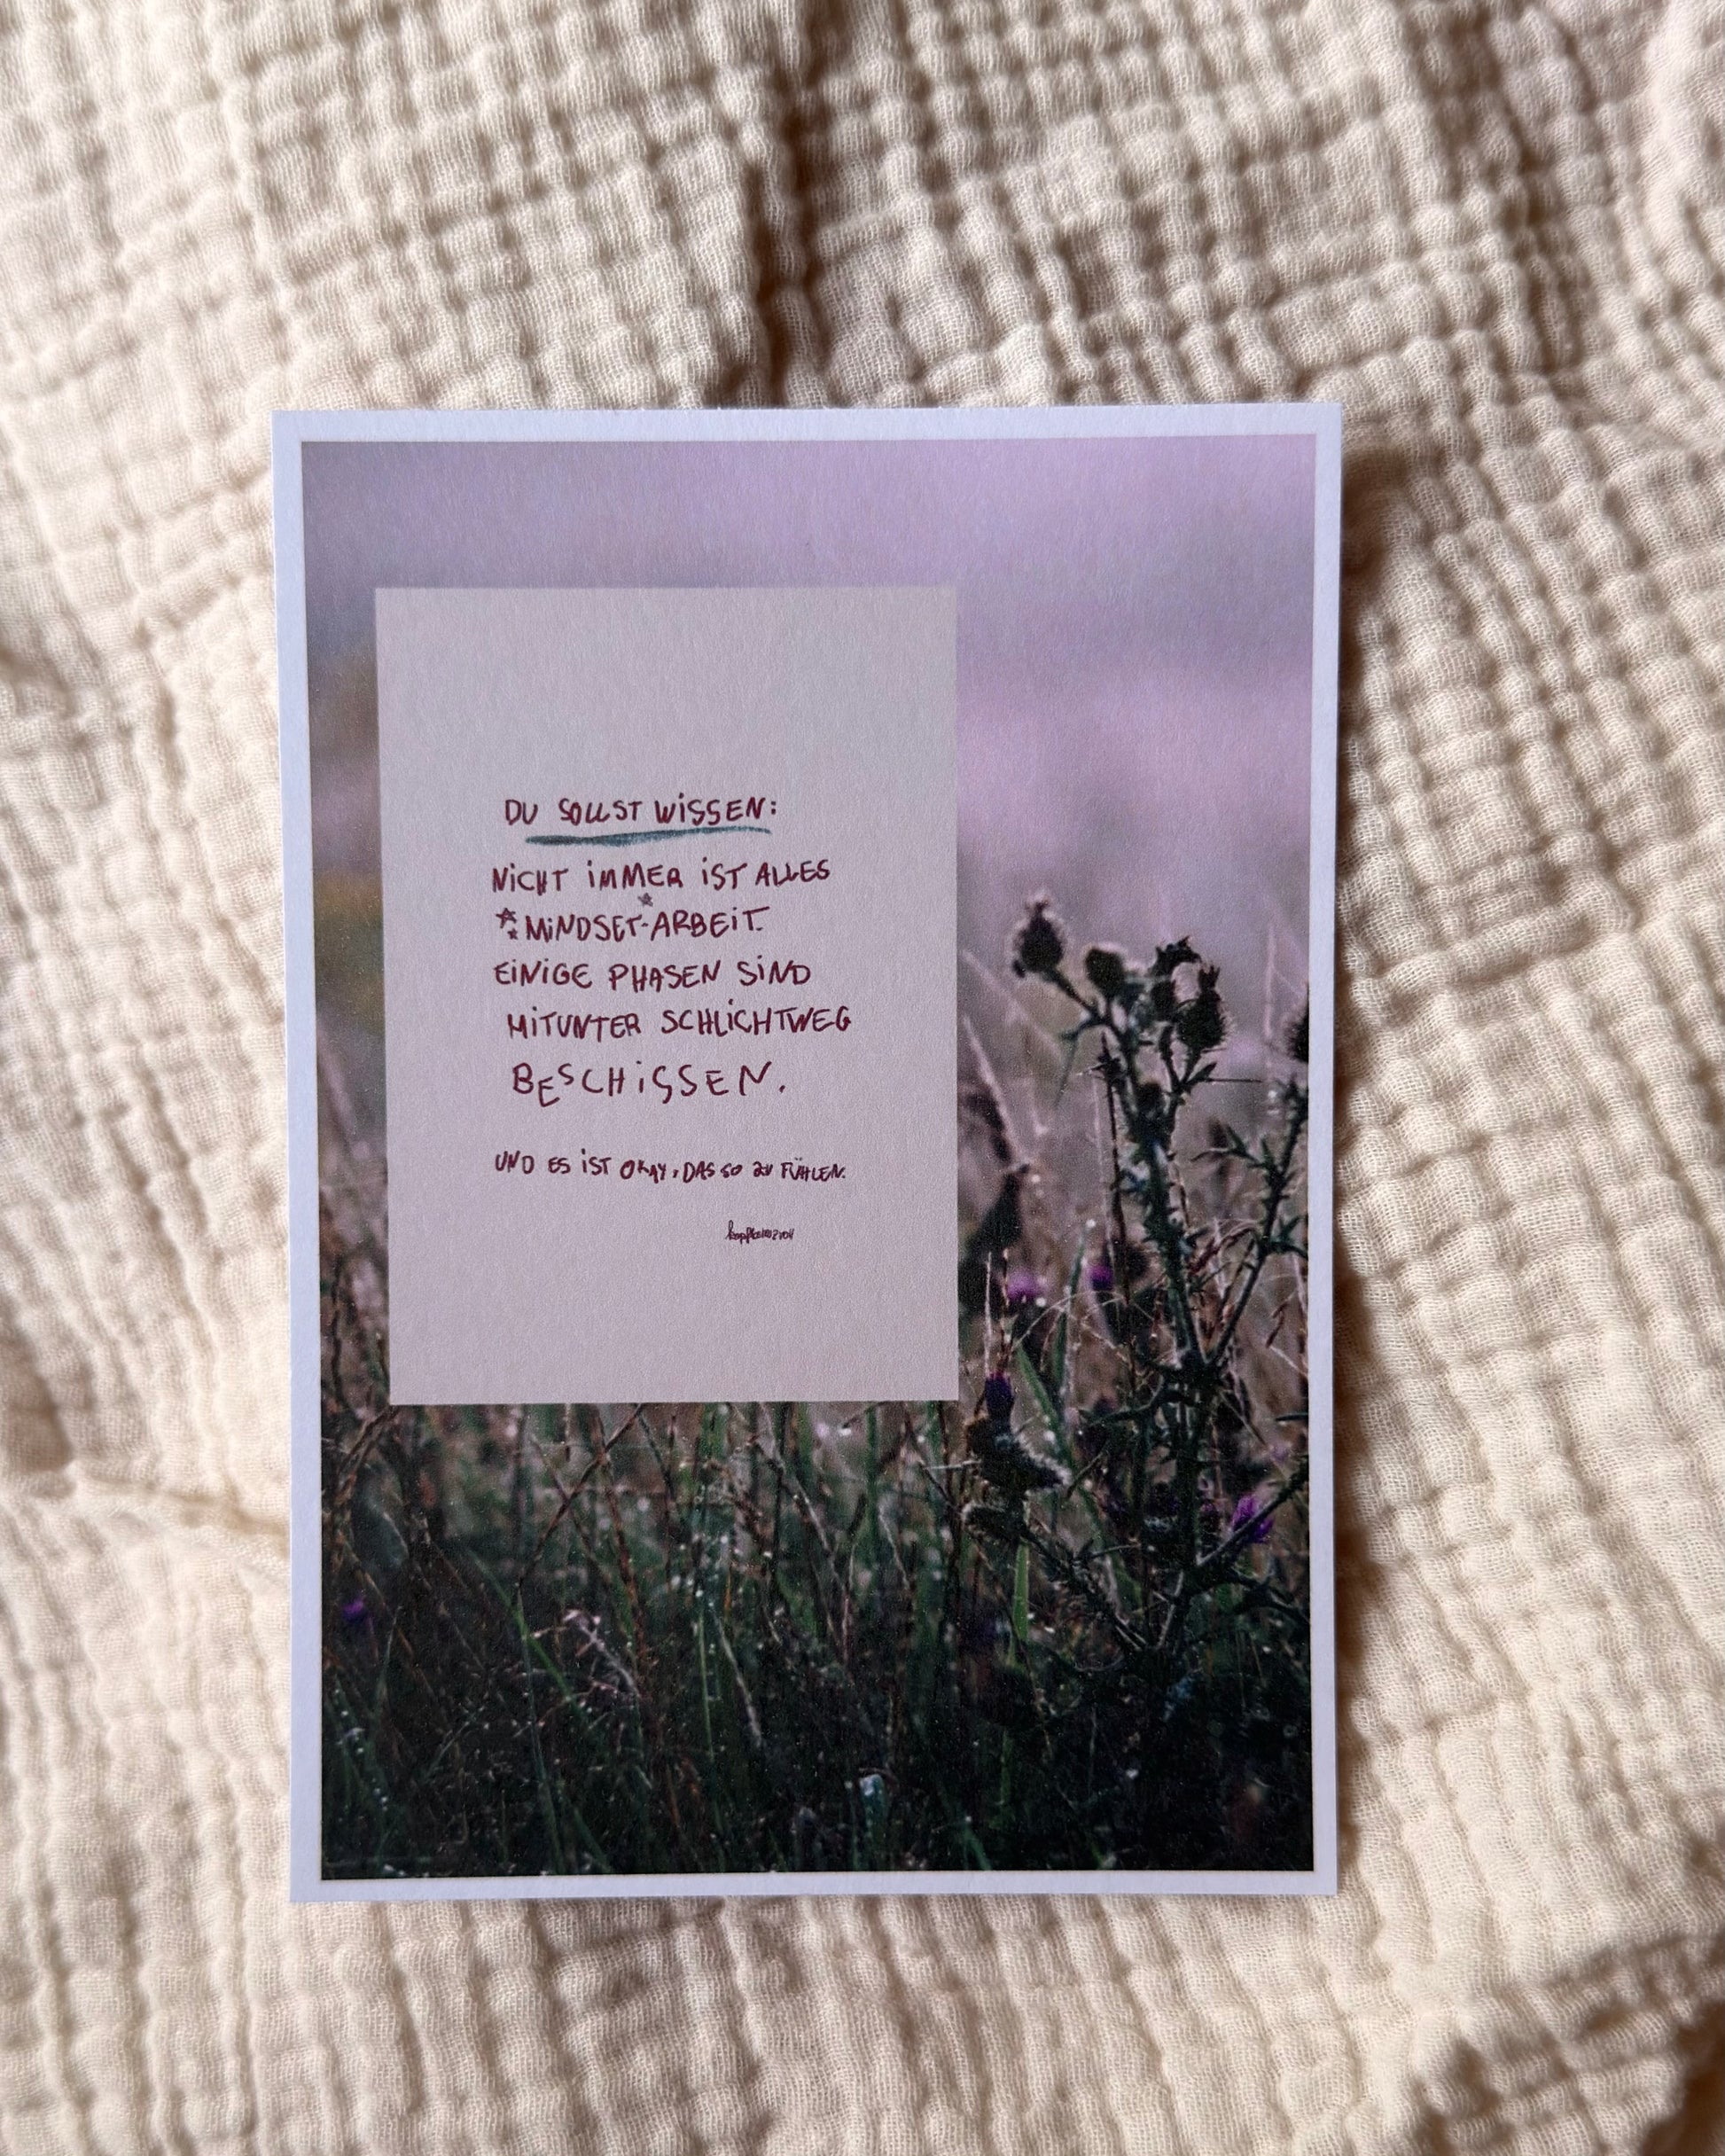 DU SOLLST WISSEN:
NICHT IMMER IST ALLES
*MINDSET*-ARBEIT.
EINIGE PHASEN SIND
MITUNTER SCHLICHTWEG
BESCHISSEN.
UND ES IST OKAY, DAS SO ZU FÜHLEN.